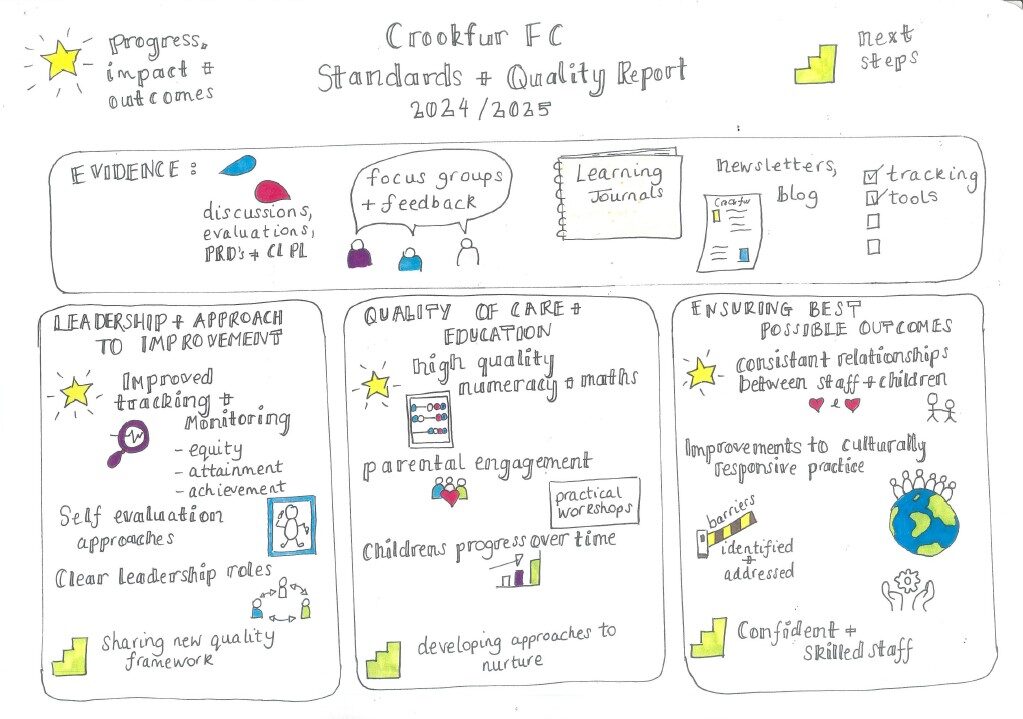 Progress,
impact +
outcomes
Crookfur FC
Standards + Quality Report
2024/2025
next
steps
EVIDENCE:
discussions,
evaluations,
PRD's + CLPL
focus groups
+ feedback
Learning
Journals
newsletters,
blog
Crookfur
tracking
tools
LEADERSHIP + APPROACH
TO IMPROVEMENT
Improved
tracking +
Monitoring
- equity
- attainment
- achievement
Self evaluation
approaches
Clear Leadership roles
Sharing new quality
framework
QUALITY OF CARE +
EDUCATION
high quality
numeracy + maths
parental engagement
practical
workshops
Childrens progress over time
developing approaches to
nurture
ENSURING BEST
POSSIBLE OUTCOMES
consistant relationships
between staff + children
Improvements to culturally
responsive practice
barriers
identified
+
addressed
Confident +
skilled staff